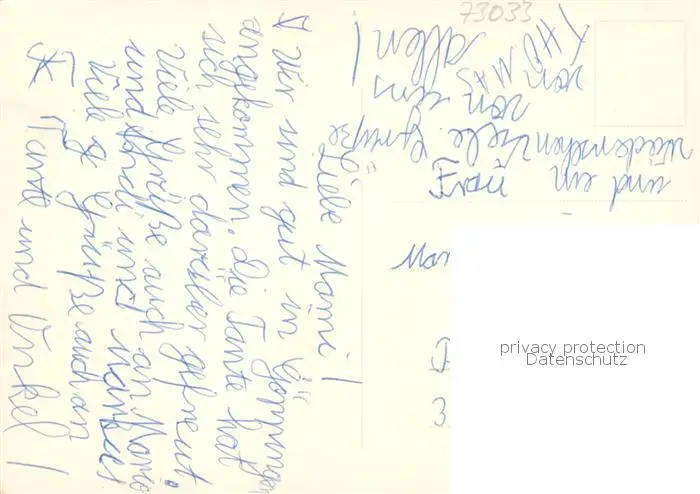 73033
Liebe Mami!
Wir sind gut in Göppingen
angekommen. Die Tante hat
sich sehr darüber gefreut.
Viele Grüße auch an Marco
und und
Viele Grüße auch an
Tante und Onkel!
und ein
Viele Grüße
von uns
allen!
von
THOMAS
Frau
Mar
3
privacy protection
Datenschutz